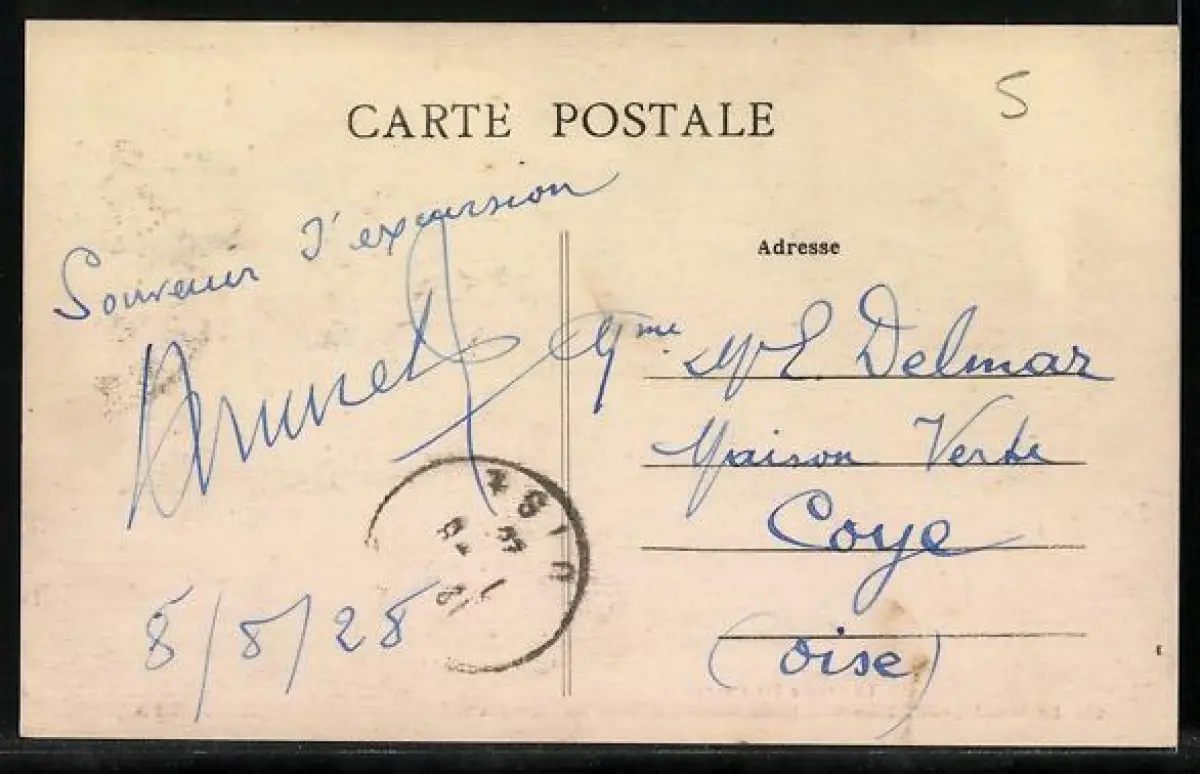 CARTE POSTALE
5
Souvenir d'excursion
Adresse
Mme E. Delmar
Maison Verte
Coye
(Oise)
8/8/28